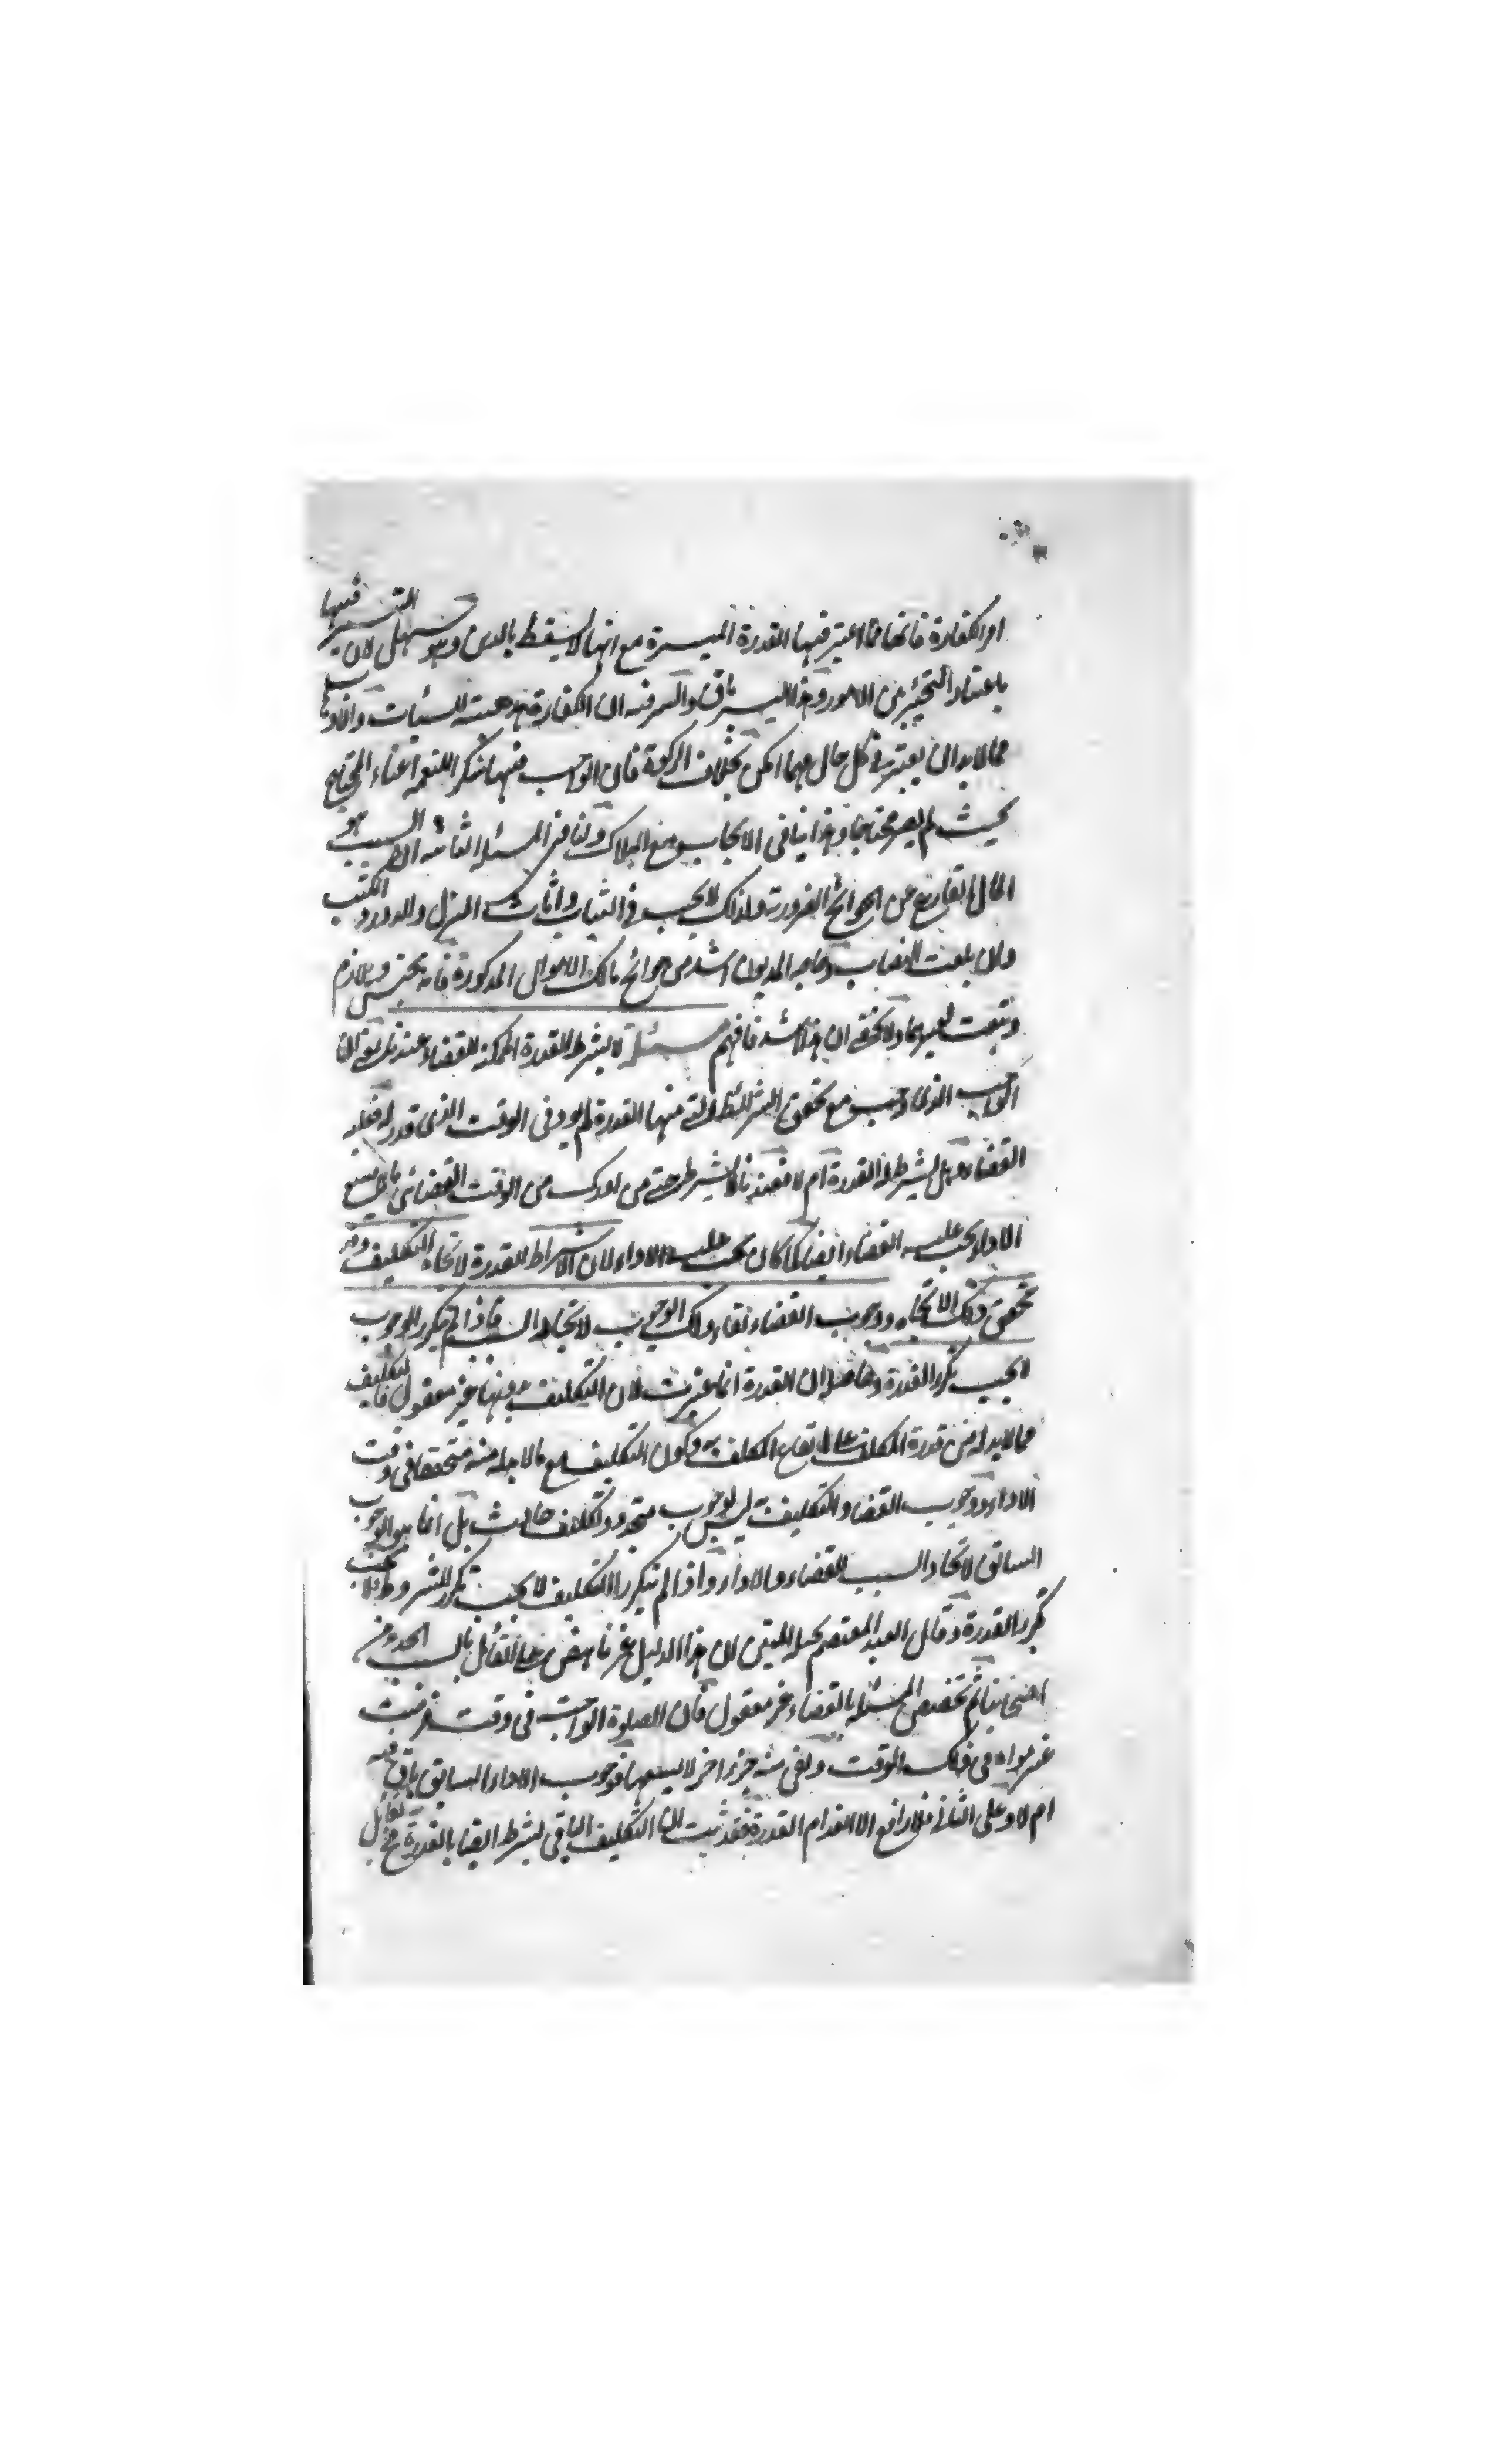 او الكفارة فانها مما اعتبر فيها القدرة الميسرة مع انها لا يسقط بالدين وهو سهل لان التيسير فيها
باعتبار التخيير بين الامور وهذا اليسر باق والسر فيه ان الكفارة للسيئات
مما لابد ان يعتبر في كل حال مهما امكن بخلاف الزكوة فان الواجب فيها شكر اللنعمة اغناء المحتاج
بحيث لم يصر محتاجا وهذا ينافى الايجاب مع الهلاك ولنا فى المسئلة الثانية ان السبب هو
المال الفارغ عن الحوائج الضرورية ولذلك لا يجب في الثياب واثاث المنزل والدور والكتب
وان بلغت النصاب وحاجة المديون اشد من حوائج مالك الاموال المذكورة فانه يحبس ويلازم
ولا يخفى ان هذا اشد فافهم مسئلة لا يشترط القدرة الممكنة للقضاء عندنا يعنى ان
الواجب الذى وجب مع تحقق الشرائط التى منها القدرة لم يود فى الوقت الذى قدر له فعليه
القضاء هل يشترط له القدرة ام لا فعندنا لا يشترط حتى من ادرك من الوقت القضائى ما لا يسع
الاداء يجب عليه القضاء ايضا كما كان يجب عليه الاداء لان اشتراط القدرة لاتجاه التكليف وقد
تحقق ذلك الاتجاه ووجوب القضاء بقاء ذلك الوجوب لاتحاد السبب فاذا لم يتكرر الوجوب
لم يجب تكرر القدرة وحاصله ان القدرة انما اعتبرت لان التكليف بدونها غير معقول فالتكليف
مما لابد له من قدرة المكلف على ايقاع المكلف به وكون التكليف مع ما لابد له منه متحققا فى وقت
الاداء ووجوب القضاء والتكليف به ليس لوجوب متجدد وتكليف حادث بل انما هو الوجوب
السابق لاتحاد السبب للقضاء والاداء واذا لم يتكرر التكليف لا يجب تكرر المشروط فلا يجب
تكرر القدرة وقال العبد المعتصم بحبله المتين ان هذا الدليل غير ناهض على القائل بالسبب الجديد من
اصحابنا ثم تخصيص المسئلة بالقضاء غير معقول فان الصلوة الواجبة فى وقت فرضت
غير مواداه فى ذلك الوقت وبقى منه جزء اخر لا يسعها فوجوب الاداء السابق باق فيه
ام لا وعلى الثانى فلا رافع الا انعدام القدرة فقد ثبت ان التكليف الباقى يشترط ايضا بالقدرة